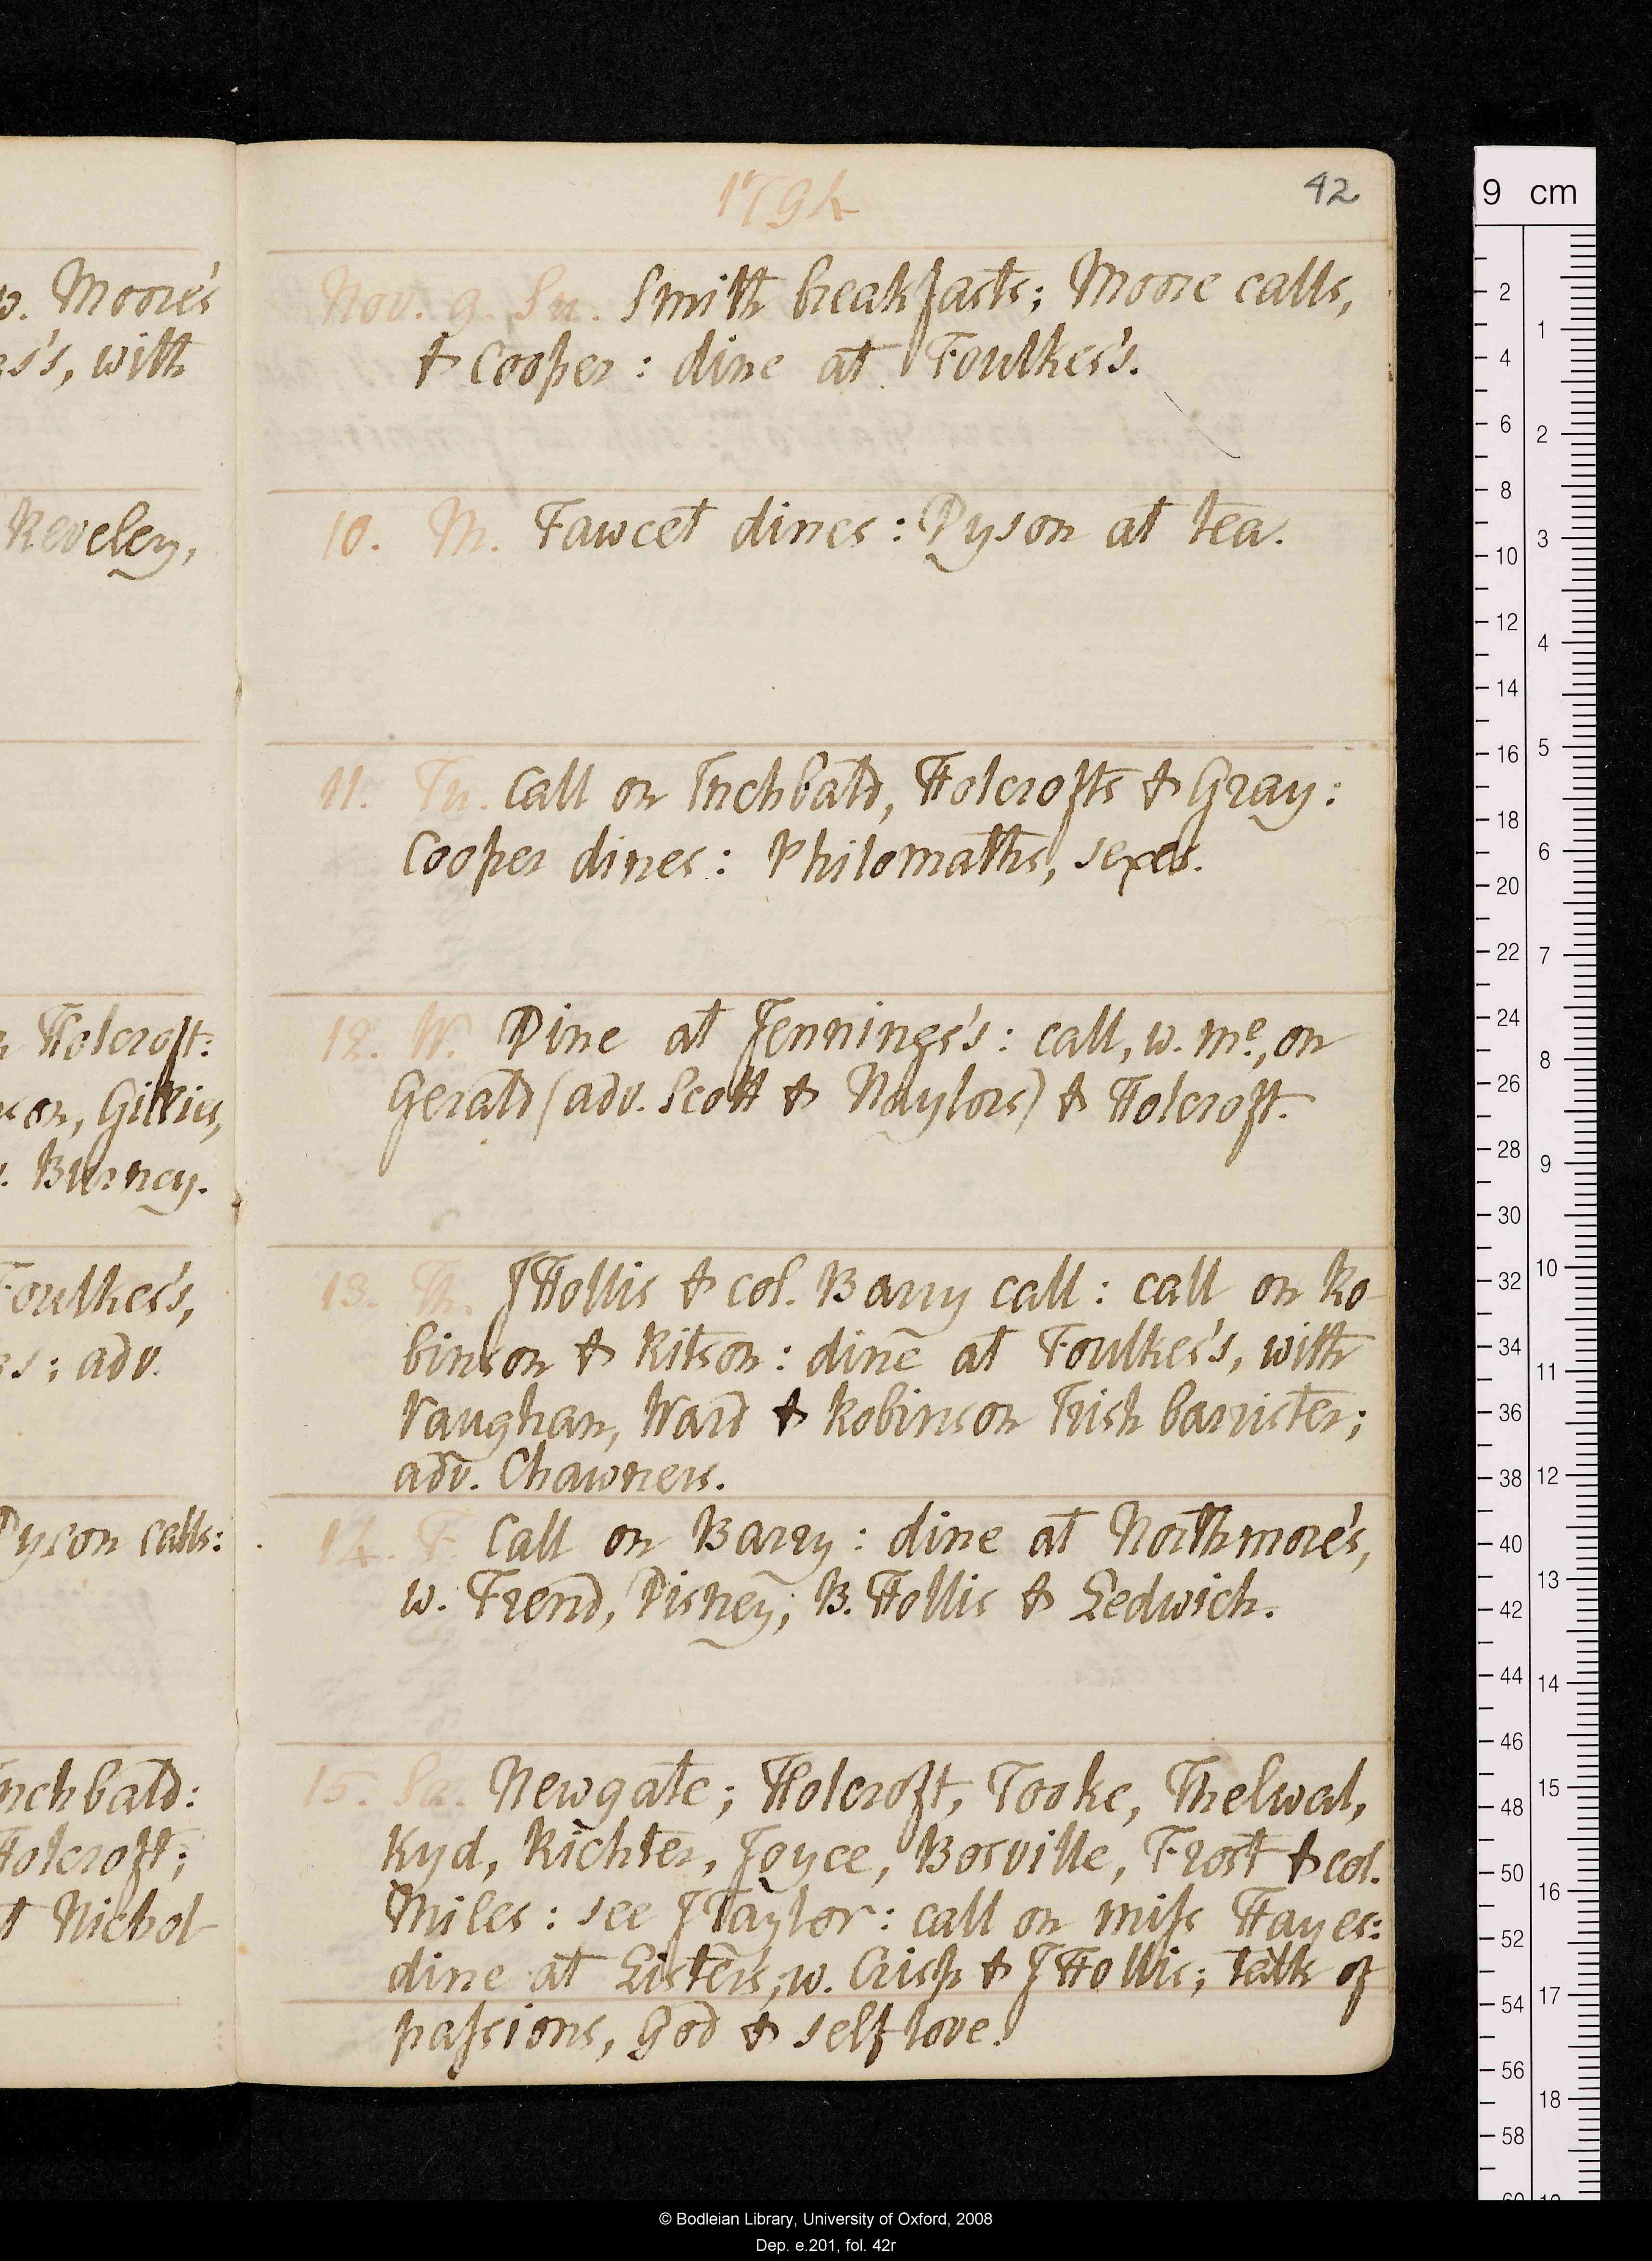 w. Moore's
s's, with
Reveley,
Holcroft:
son, Gillies,
Burney.
Foulkes's,
s; adv.
Dyson calls:
nchbald:
Holcroft;
Nichol
1794
42
Nov. 9. Su. Smith breakfasts; Moore calls,
& Cooper: dine at Foulkes's.
10. M. Fawcet dines: Dyson at tea.
11. Tu. Call on Inchbald, Holcrofts & Gray:
Cooper dines: Philomaths, sexes.
12. W. Dine at Jennings's: call, w. me, on
Gerald (adv. Scott & Naylors) & Holcroft.
13. Th. J Hollis & col. Barry call: call on Ro-
binson & Ritson: dine at Foulkes's, with
Vaughan, Ward & Robinson Irish barrister;
adv. Chawners.
14. F. Call on Barry: dine at Northmore's,
w. Frend, Disney, B. Hollis & Ledwich.
15. Sa. Newgate; Holcroft, Tooke, Thelwal,
Kyd, Richter, Joyce, Bosville, Frost & col.
Miles: see J Taylor: call on miss Hayes:
dine at Lister's, w. Crisp & J Hollis; talk of
passions, God & self love.
9 cm
2
4
6
8
10
12
14
16
18
20
22
24
26
28
30
32
34
36
38
40
42
44
46
48
50
52
54
56
58
60
1
2
3
4
5
6
7
8
9
10
11
12
13
14
15
16
17
18
© Bodleian Library, University of Oxford, 2008
Dep. e.201, fol. 42r